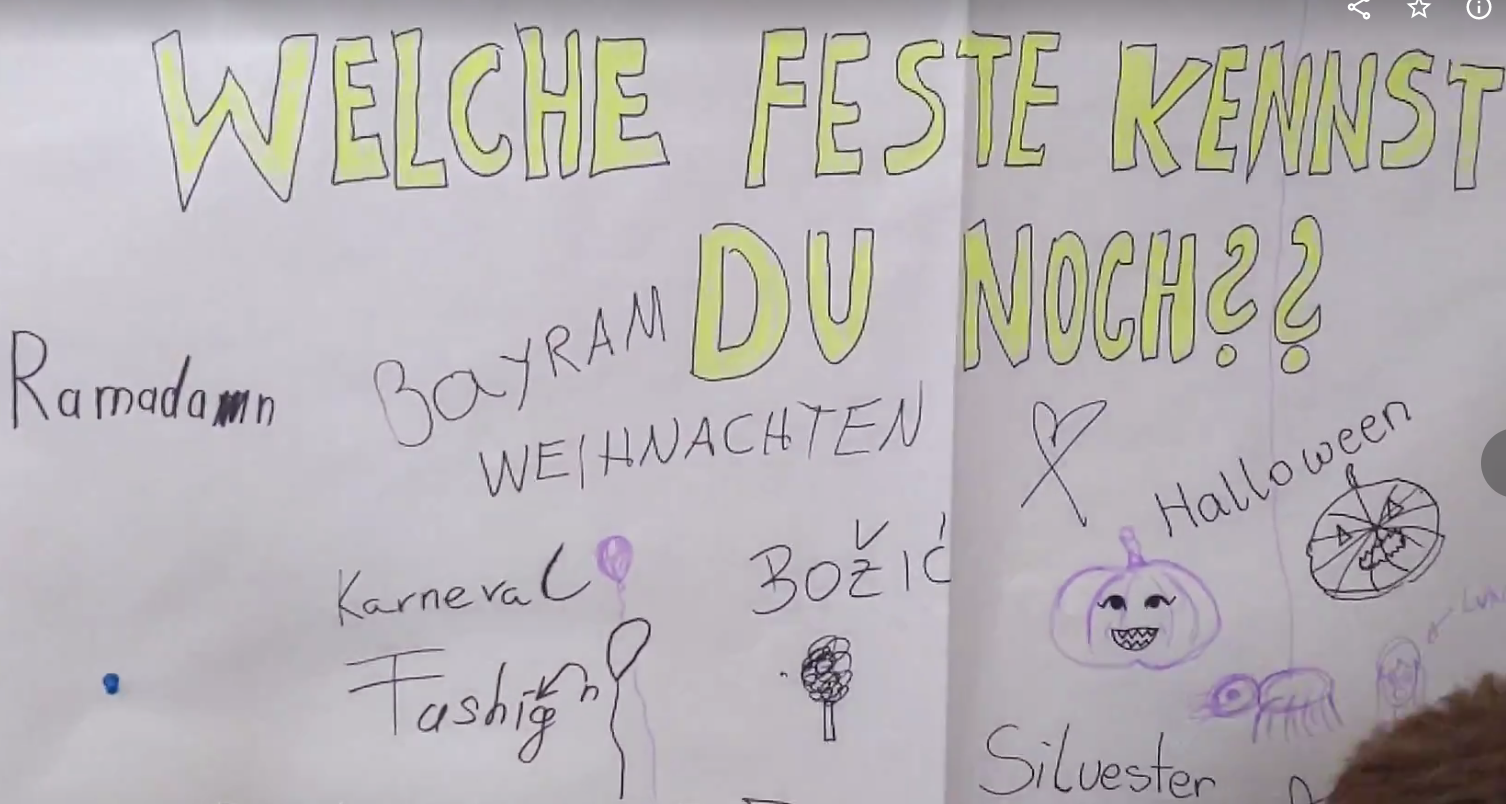 WELCHE FESTE KENNST
DU NOCH??
BayRAM
Ramadamn
WEIHNACHTEN
Halloween
Karneval
BOŽIĆ
Fashign
Silvester